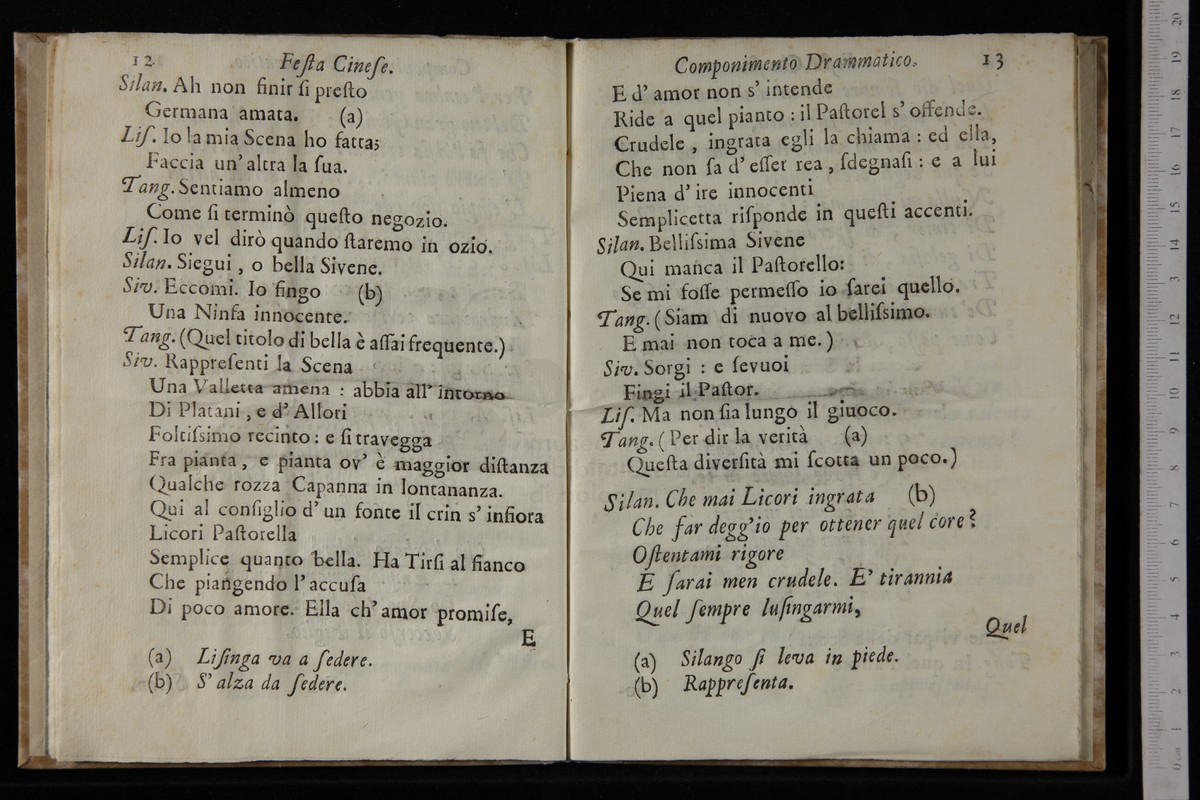 12. Feſta Cineſe.
Silan. Ah non finir ſi preſto
Germana amata. (a)
Liſ. Io la mia Scena ho fatta;
Faccia un' altra la ſua.
Tang. Sentiamo almeno
Come ſi terminò queſto negozio.
Liſ. Io vel dirò quando ſtaremo in ozio.
Silan. Siegui, o bella Sivene.
Siv. Eccomi. Io fingo (b)
Una Ninfa innocente.
Tang. (Quel titolo di bella è aſſai frequente.)
Siv. Rappreſenti la Scena
Una Valletta amena : abbia all' intorno
Di Platani, e d' Allori
Foltiſsimo recinto : e ſi travegga
Fra pianta, e pianta ov' è maggior diſtanza
Qualche rozza Capanna in lontananza.
Qui al conſiglio d' un fonte il crin s' infiora
Licori Paſtorella
Semplice quanto bella. Ha Tirſi al fianco
Che piangendo l' accuſa
Di poco amore. Ella ch' amor promiſe,
E
(a) Liſinga va a ſedere.
(b) S' alza da ſedere.
Componimento Drammatico. 13
E d' amor non s' intende
Ride a quel pianto : il Paſtorel s' offende.
Crudele, ingrata egli la chiama : ed ella,
Che non ſa d' eſſer rea, ſdegnaſi : e a lui
Piena d' ire innocenti
Semplicetta riſponde in queſti accenti.
Silan. Belliſsima Sivene
Qui manca il Paſtorello:
Se mi foſſe permeſſo io ſarei quello.
Tang. (Siam di nuovo al belliſsimo.
E mai non toca a me.)
Siv. Sorgi : e ſevuoi
Fingi il Paſtor.
Liſ. Ma non ſia lungo il giuoco.
Tang. (Per dir la verità (a)
Queſta diverſità mi ſcotta un poco.)
Silan. Che mai Licori ingrata (b)
Che far degg'io per ottener quel core?
Oſtentami rigore
E ſarai men crudele. E' tirannia
Quel ſempre luſingarmi,
Quel
(a) Silango ſi leva in piede.
(b) Rappreſenta.